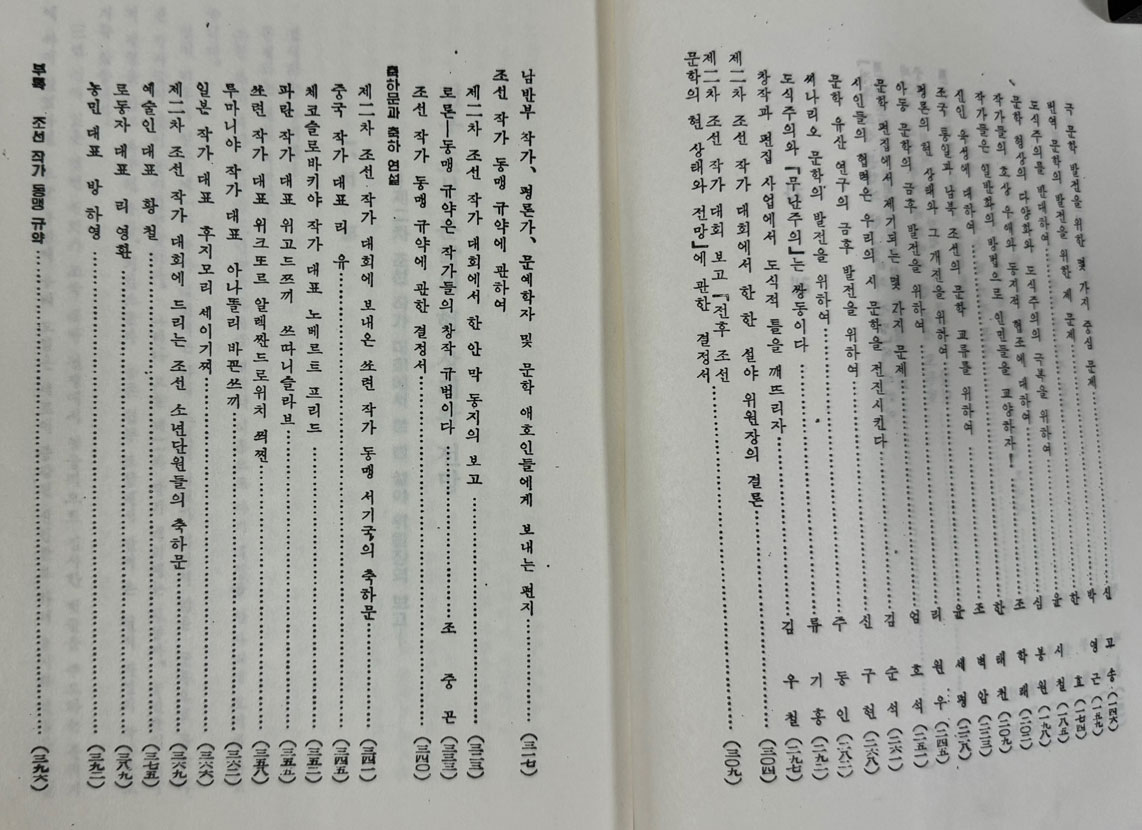 극 문학 발전을 위한 몇 가지 중심 문제 신 고 송 (一四六)
번역 문학의 발전을 위한 제 문제 박 영 근 (一五九)
도식주의를 반대하여 한 효 (一七四)
문학 형상의 다양화와 도식주의의 극복을 위하여 윤 시 철 (一八五)
작가들의 호상 우애와 동지적 협조에 대하여 심 봉 원 (一九八)
작가들은 일반화의 방법으로 인민들을 교양하자! 조 학 래 (二〇二)
신인 육성에 대하여 한 태 천 (二〇九)
조국 통일과 남북 조선의 문학 교류를 위하여 조 벽 암 (二二三)
평론의 현 상태와 그 개전을 위하여 윤 세 평 (二二八)
아동 문학의 금후 발전을 위하여 리 원 우 (二四五)
문학 편집에서 제기되는 몇 가지 문제 엄 호 석 (二五一)
시인들의 협력은 우리의 시 문학을 전진시킨다 김 순 석 (二六一)
문학 유산 연구의 금후 발전을 위하여 신 구 현 (二六八)
씨나리오 문학의 발전을 위하여 주 동 인 (二八二)
도식주의와 『무난주의』는 짱동이다 류 기 홍 (二九二)
창작과 편집 사업에서 도식적 틀을 깨뜨리자 김 우 철 (二九七)
제二차 조선 작가 대회에서 한 설야 위원장의 결론 (三〇四)
제二차 조선 작가 대회 보고 『전후 조선
문학의 현 상태와 전망』에 관한 결정서 (三〇九)
남반부 작가, 평론가, 문예학자 및 문학 애호인들에게 보내는 편지 (三一七)
조선 작가 동맹 규약에 관하여
제二차 조선 작가 대회에서 한 안 막 동지의 보고 (三二三)
로론—동맹 규약은 작가들의 창작 규범이다 조 중 곤 (三三三)
조선 작가 동맹 규약에 관한 결정서 (三四〇)
축하문과 축하 연설
제二차 조선 작가 대회에 보내온 쏘련 작가 동맹 서기국의 축하문 (三四一)
중국 작가 대표 리 유 (三四五)
체코슬로바키야 작가 대표 노베르트 프리드 (三五二)
파란 작가 대표 위고드쯔끼 쯔따니슬라브 (三五五)
쏘련 작가 대표 위크또르 알렉싼드로위치 쬐쩐 (三五八)
루마니야 작가 대표 아나똘리 바꼰쓰끼 (三六二)
일본 작가 대표 후지모리 세이기찌 (三六六)
제二차 조선 작가 대회에 드리는 조선 소년단원들의 축하문 (三六九)
예술인 대표 황 철 (三七五)
로동자 대표 리 영환 (三八九)
농민 대표 방 하영 (三九二)
부록 조선 작가 동맹 규약 (三九六)